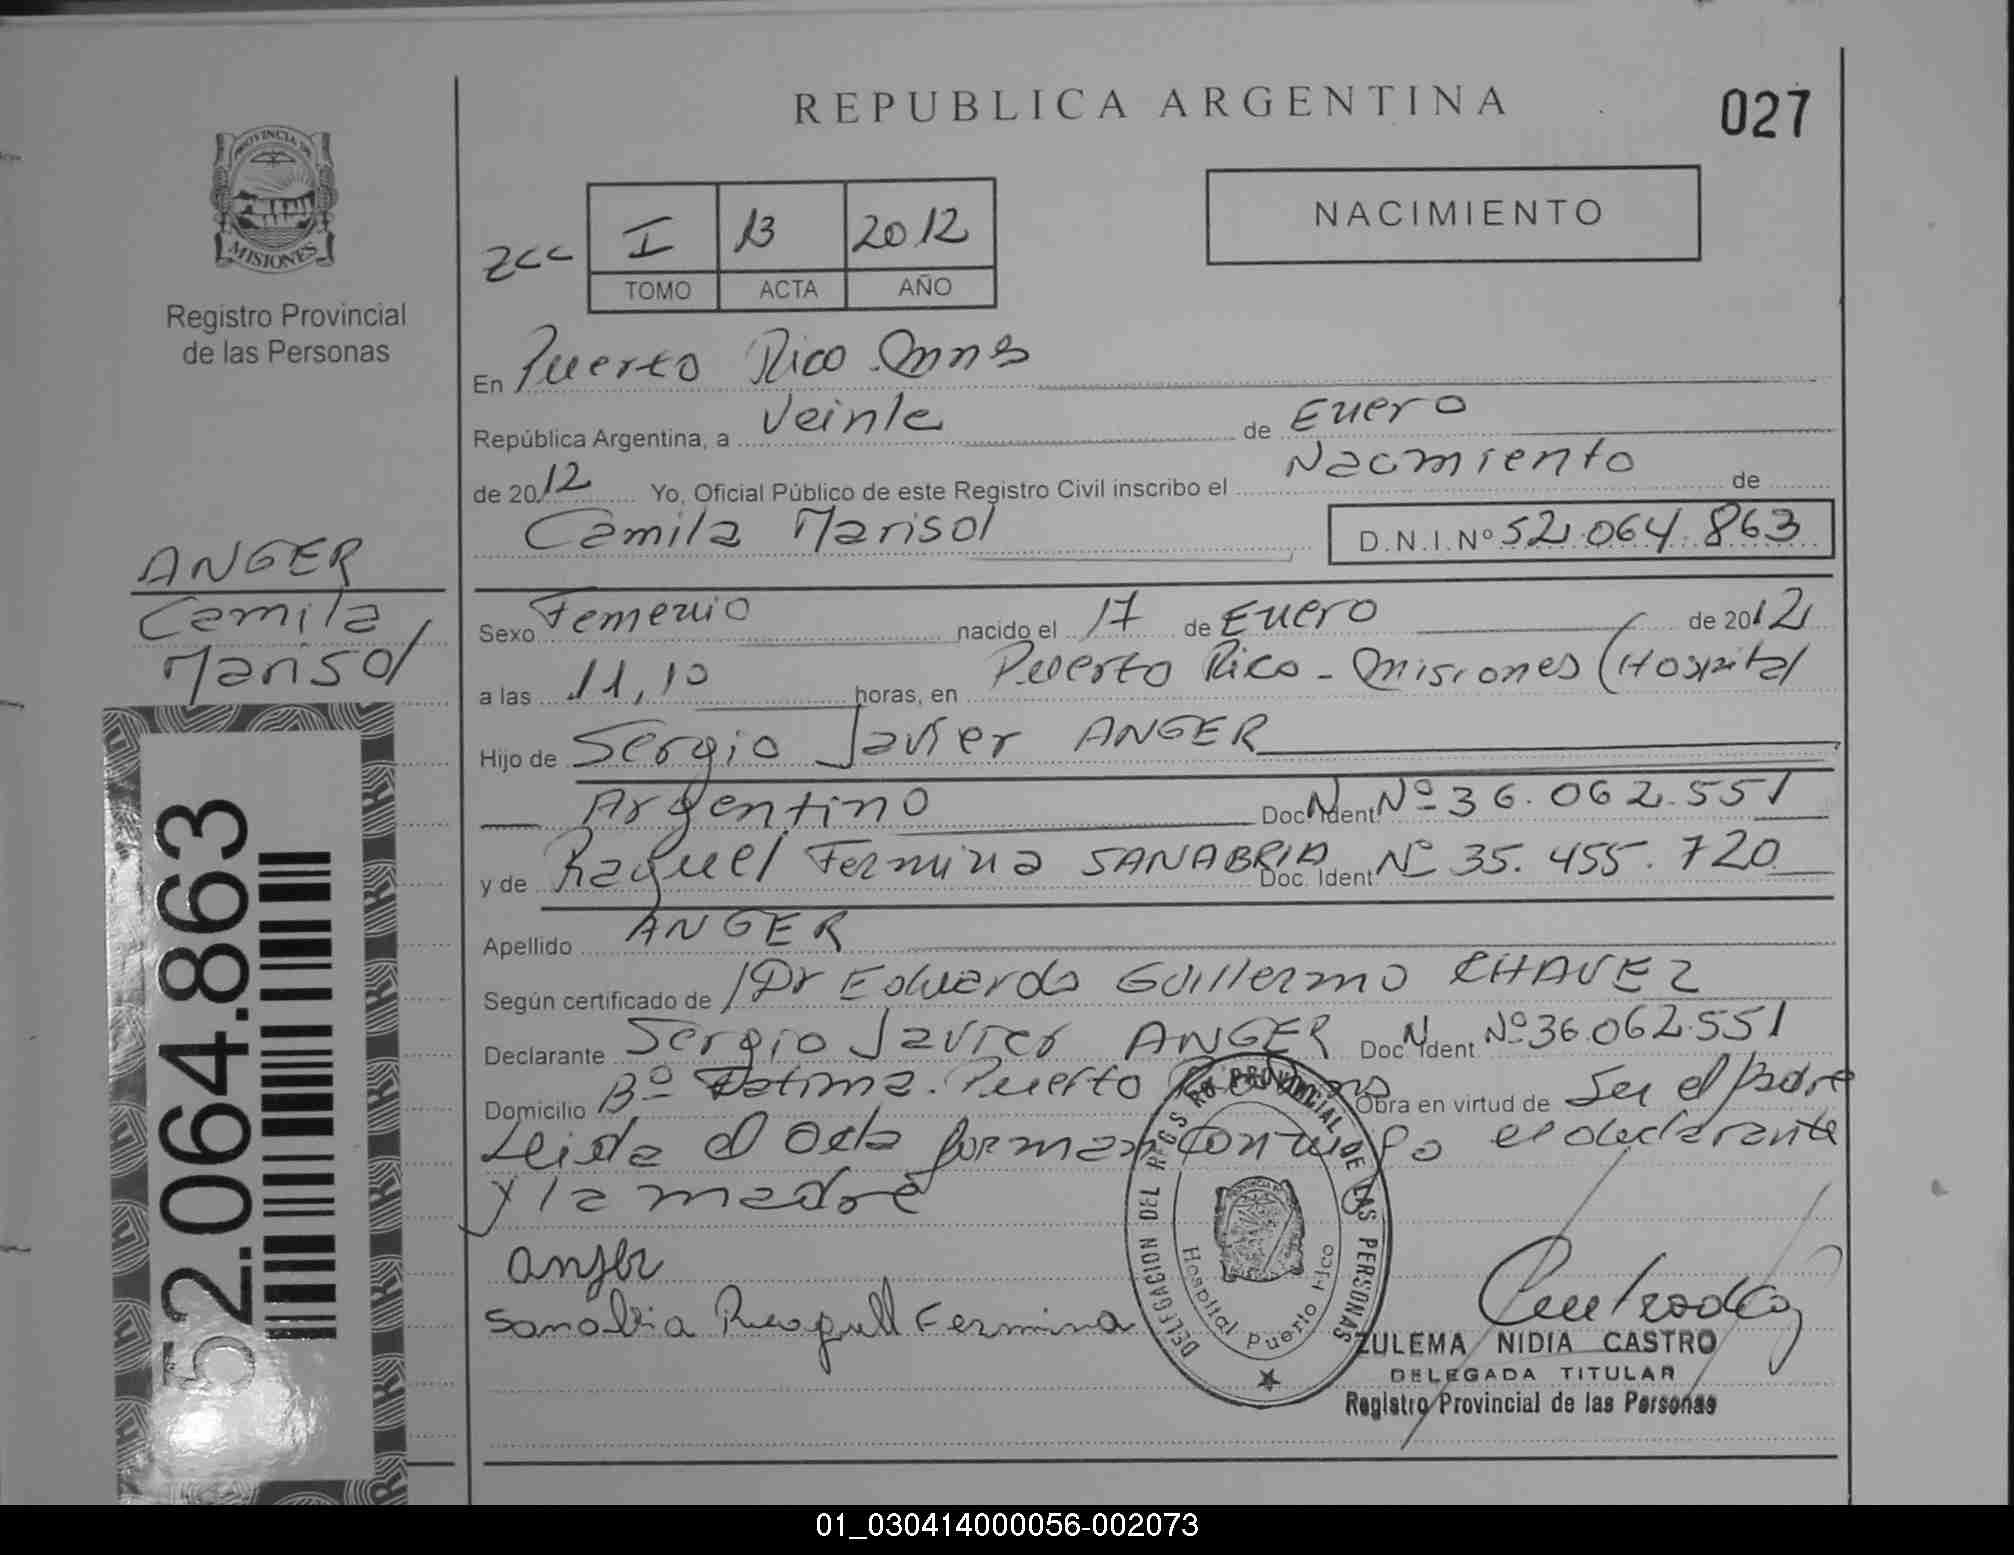 REPUBLICA ARGENTINA
027
PROVINCIA DE
MISIONES
Registro Provincial
de las Personas
NACIMIENTO
I 13 2012
TOMO ACTA AÑO
En Puerto Rico Mnes
República Argentina, a Veinte de Enero
de 2012 Yo, Oficial Público de este Registro Civil inscribo el Nacimiento de
Camila Marisol
D.N.I.Nº 52.064.863
ANGER
Camila
Marisol
Sexo Femenio nacido el 17 de Enero de 2012
a las 11,10 horas, en Puerto Rico - Misiones (Hospital
Hijo de Sergio Javier ANGER
Argentino Doc. Ident. Nº 36.062.551
y de Raquel Fermina SANABRIA Doc. Ident. Nº 35.455.720
Apellido ANGER
Según certificado de Dr Eduardo Guillermo CHAVEZ
Declarante Sergio Javier ANGER Doc. Ident Nº 36.062.551
Domicilio Bº Fatima. Puerto Rico Mns Obra en virtud de Ser el padre
Leida el Acta forman conmigo el declarante
y la madre
Sanabria Raquel Fermina
DELEGACION DEL REGISTRO PROVINCIAL DE LAS PERSONAS
Hospital Puerto Rico
ZULEMA NIDIA CASTRO
DELEGADA TITULAR
Registro Provincial de las Personas
52.064.863
01_030414000056-002073